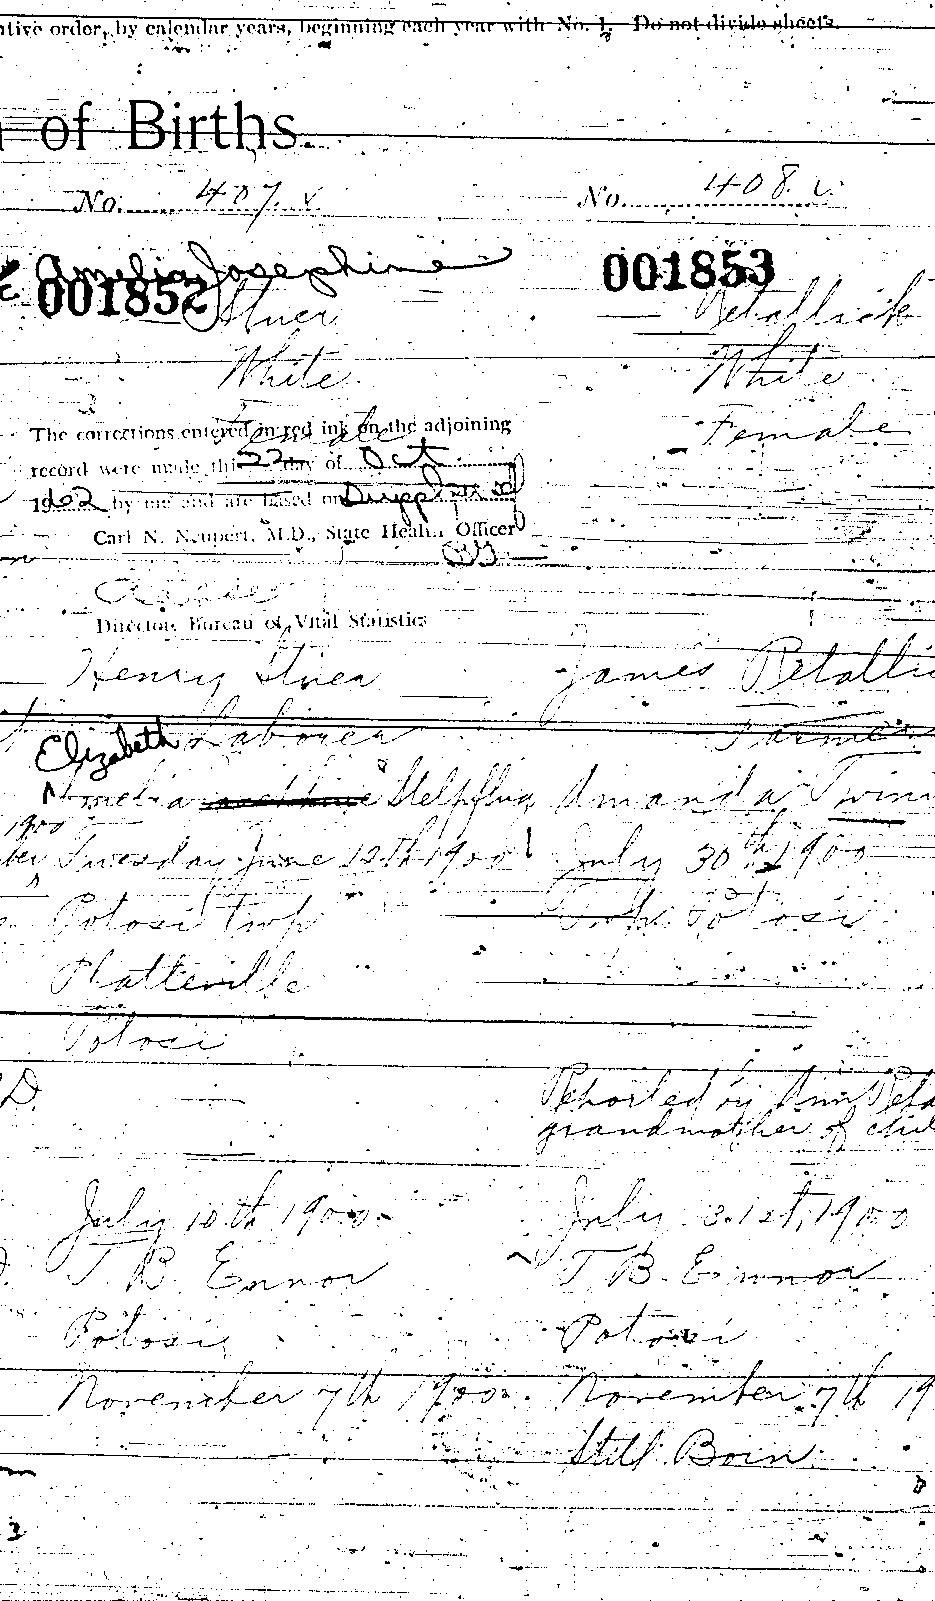 tive order, by calendar years, beginning each year with No. 1. Do not divide sheets.
of Births.
No. 407. No. 408.
Amelia Josephine
001852 001853
Stuer Retallick
White White
Female Female
The corrections entered in red ink on the adjoining
record were made this 22 day of Oct
by me and are based on
Carl N. Neupert, M.D., State Health Officer
Director Bureau of Vital Statistics
Henry Stuer James Retallic
Laborer Farmer
Elizabeth
Amelia Helpfling Amanda Twini
1900
ber Tuesday June 12th 1900 July 30th 1900
Potosi twp Twp. Potosi
Platteville
Potosi
D. Reported by Ann Reta
grandmother of chil
July 10th 1900. July 31st, 1900
J. B. Ennor J. B. Ennor
Potosi Potosi
November 7th 1900. November 7th 19
Still Born.